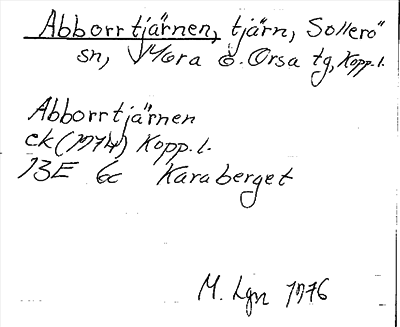 Abborrtjärnen, tjärn, Sollerö
sn, Mora o. Orsa tg, Kopp. l.
Abborrtjärnen
ek (1974) Kopp. l.
13E 6c Karaberget
M. Lgn 1976